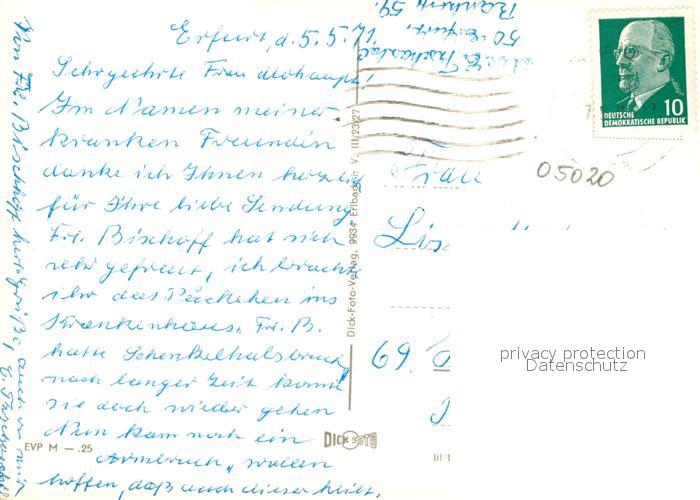 Erfurt, d. 5.5.71
Sehrgeehrte Frau
Im Namen meiner
kranken Freundin
danke ich Ihnen herzlich
für Ihre liebe Sendung
Frl. Bischoff hat sich
sehr gefreut, ich brachte
ihr das Päckchen ins
Krankenhaus. Frl. B.
hatte Schenkelhalsbruch
nach langer Zeit konnte
sie doch wieder gehen
Nun kam noch ein
Armbruch, wollen
hoffen, daß auch dieser heilt.
Von Frl. Bischoff herzl. Grüße, auch von mir
50 Erfurt
59.
Frau
69.
05020
DEUTSCHE
DEMOKRATISCHE REPUBLIK
10
Dick-Foto-Verlag, 9934 Erlbach i. V. III/23/27
DICK FOTO
EVP M —.25
III/1
privacy protection
Datenschutz